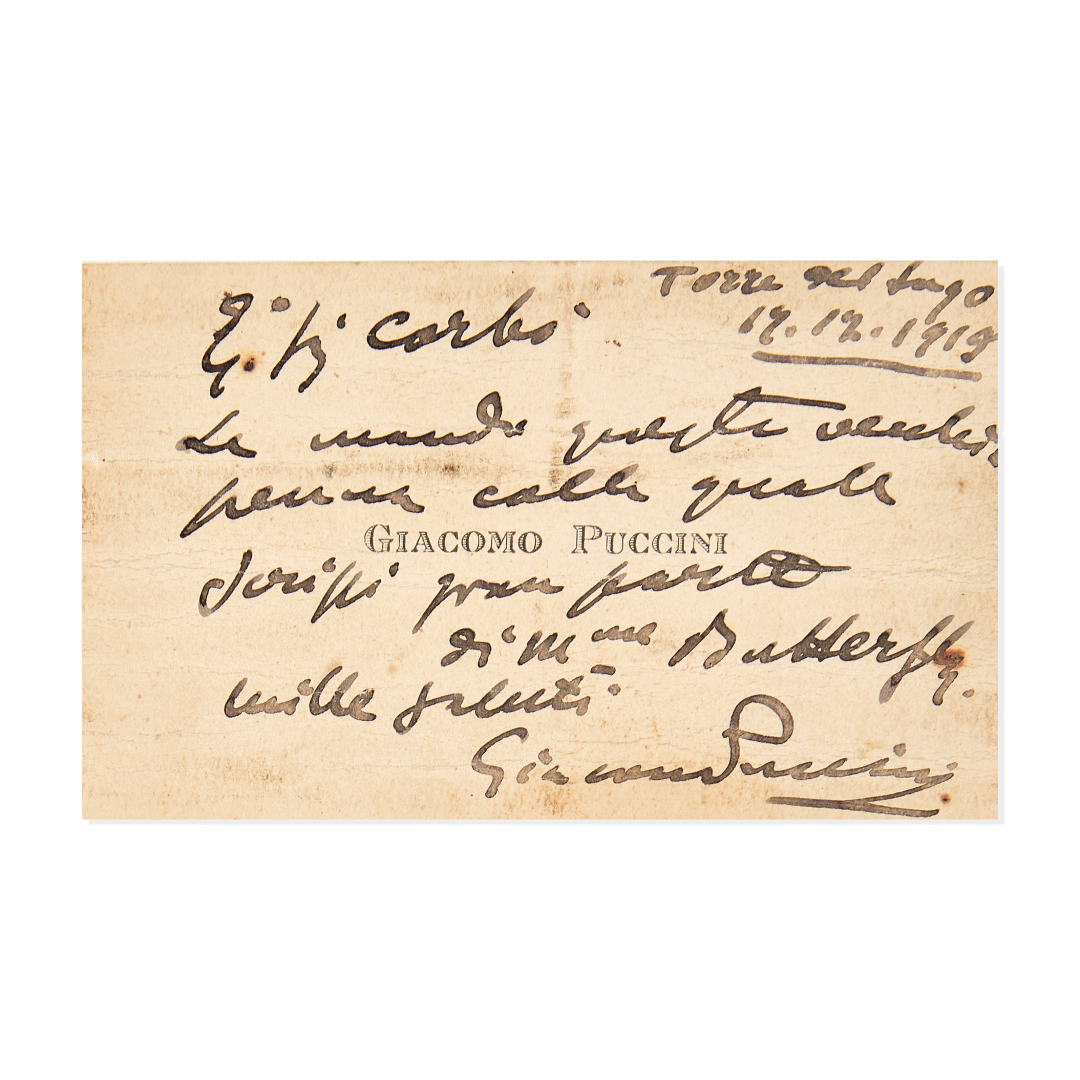 Torre del Lago
12.12.1919
Corbi
Le mando questa vecchia
penna colla quale
GIACOMO PUCCINI
scrissi gran parte
di Mme Butterfly.
mille saluti
Giacomo Puccini